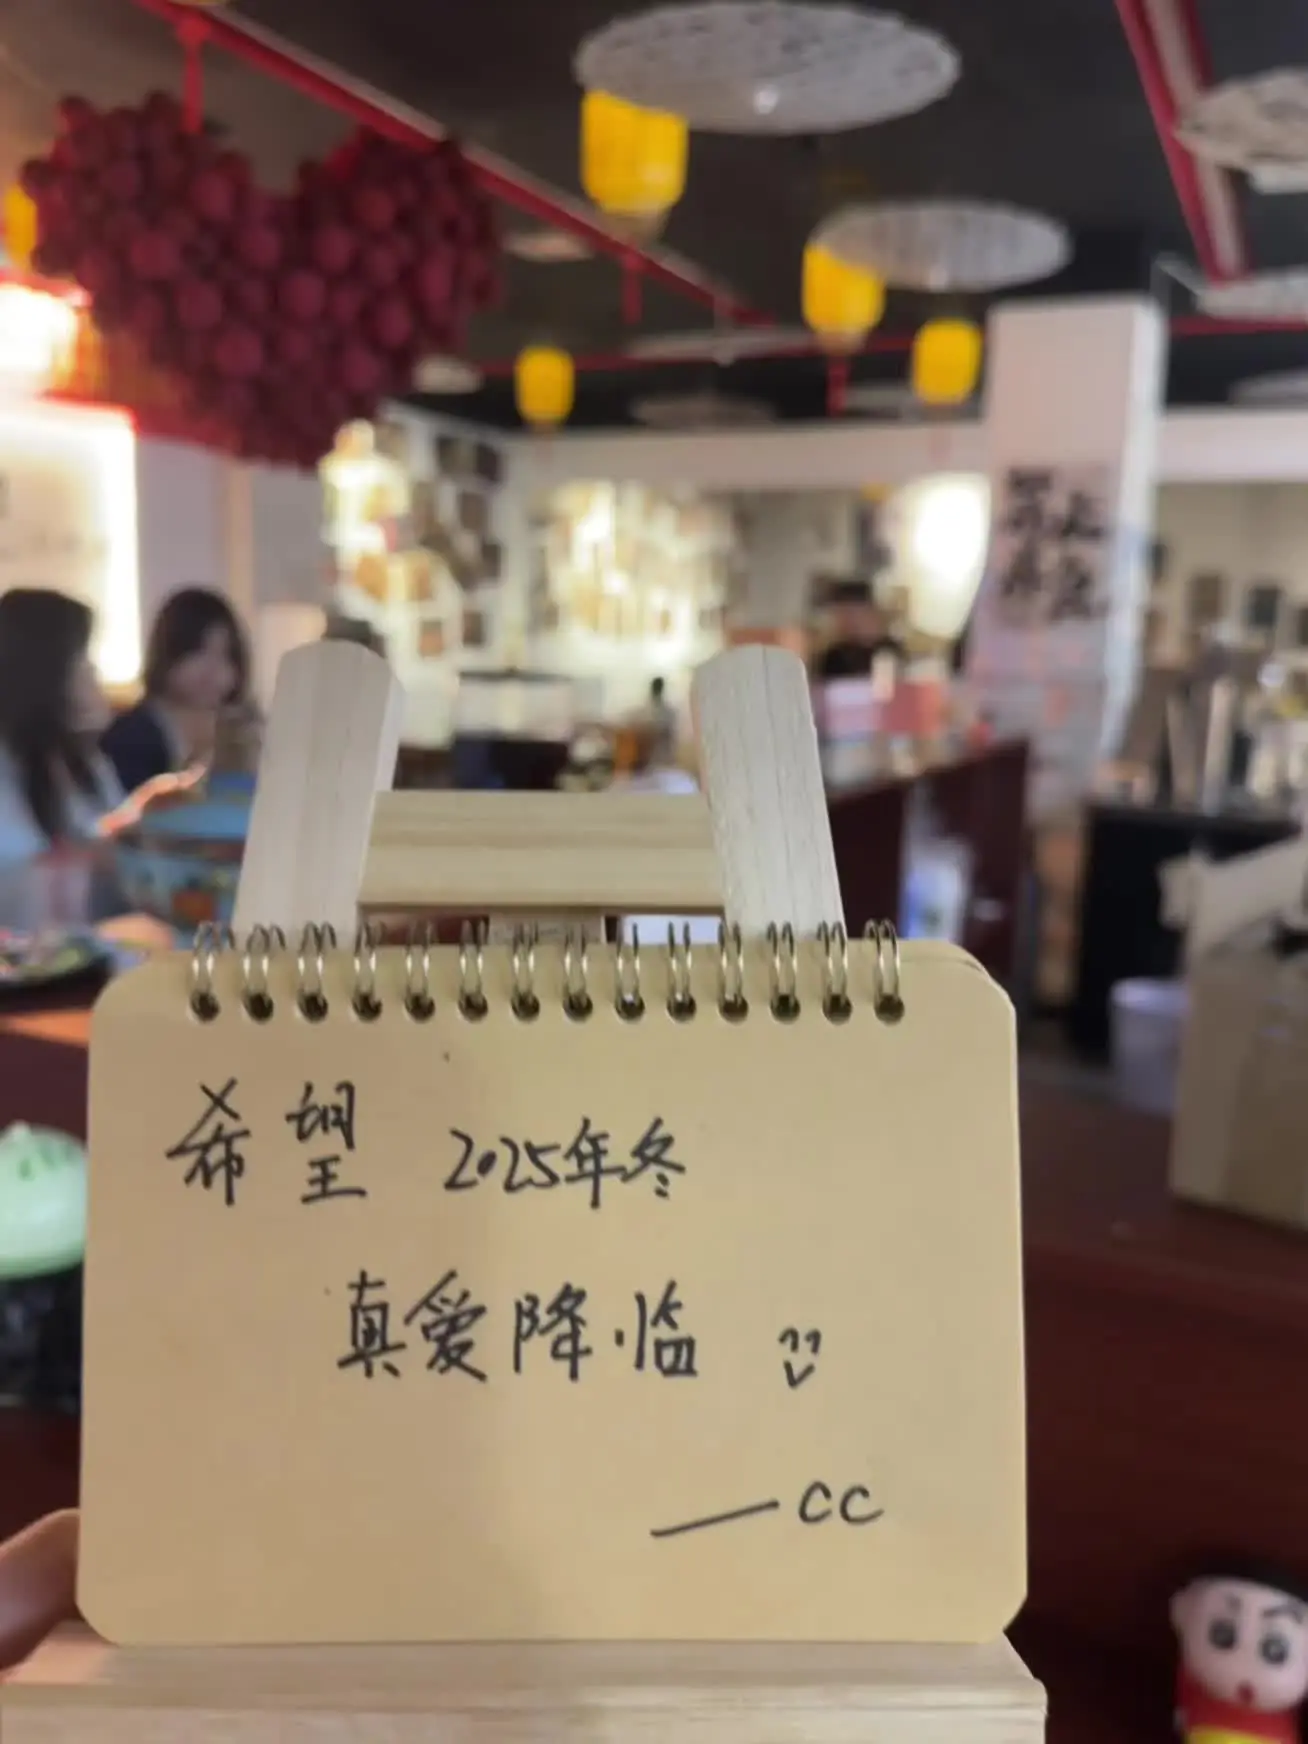 希望 2025年冬
真爱降临
——CC